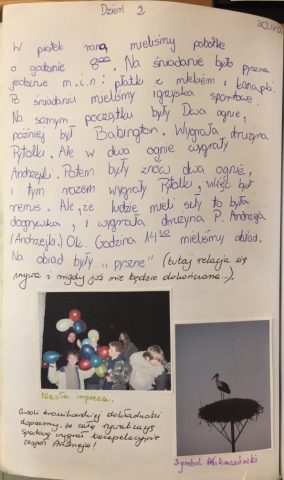 Dzień 2
W piątek rano mieliśmy pobótke
o godzinie 8ºº. Na śniadanie było pyszne
jedzenie m.i.n: płatki z mlekiem i kanapki.
Po śniadaniu mieliśmy igrzyska sportowe.
Na samym początku były Dwa ognie,
później był Babington. Wygrała drużyna
Rytolki. Ale w dwa ognie wygrały
Andrzejki. Potem były znów dwa ognie,
i tym razem wygrały Rytolki, więc był
remus. Ale, że ludzie mieli siły to była
dogrywka, i wygrała drużyna P. Andrzeja
(Andrzejki). Ok. Godzina 14³⁰ mieliśmy obiad.
Na obiad były „pyszne" (tutaj relacja się
urywa i nigdy już nie będzie dokończona...).
Niezła impreza.
kronikarskiej dokładności
dopiszmy, że całą rywalizację
sportową wygrał bezapelacyjnie
zespół Andrzeja!
Symbol